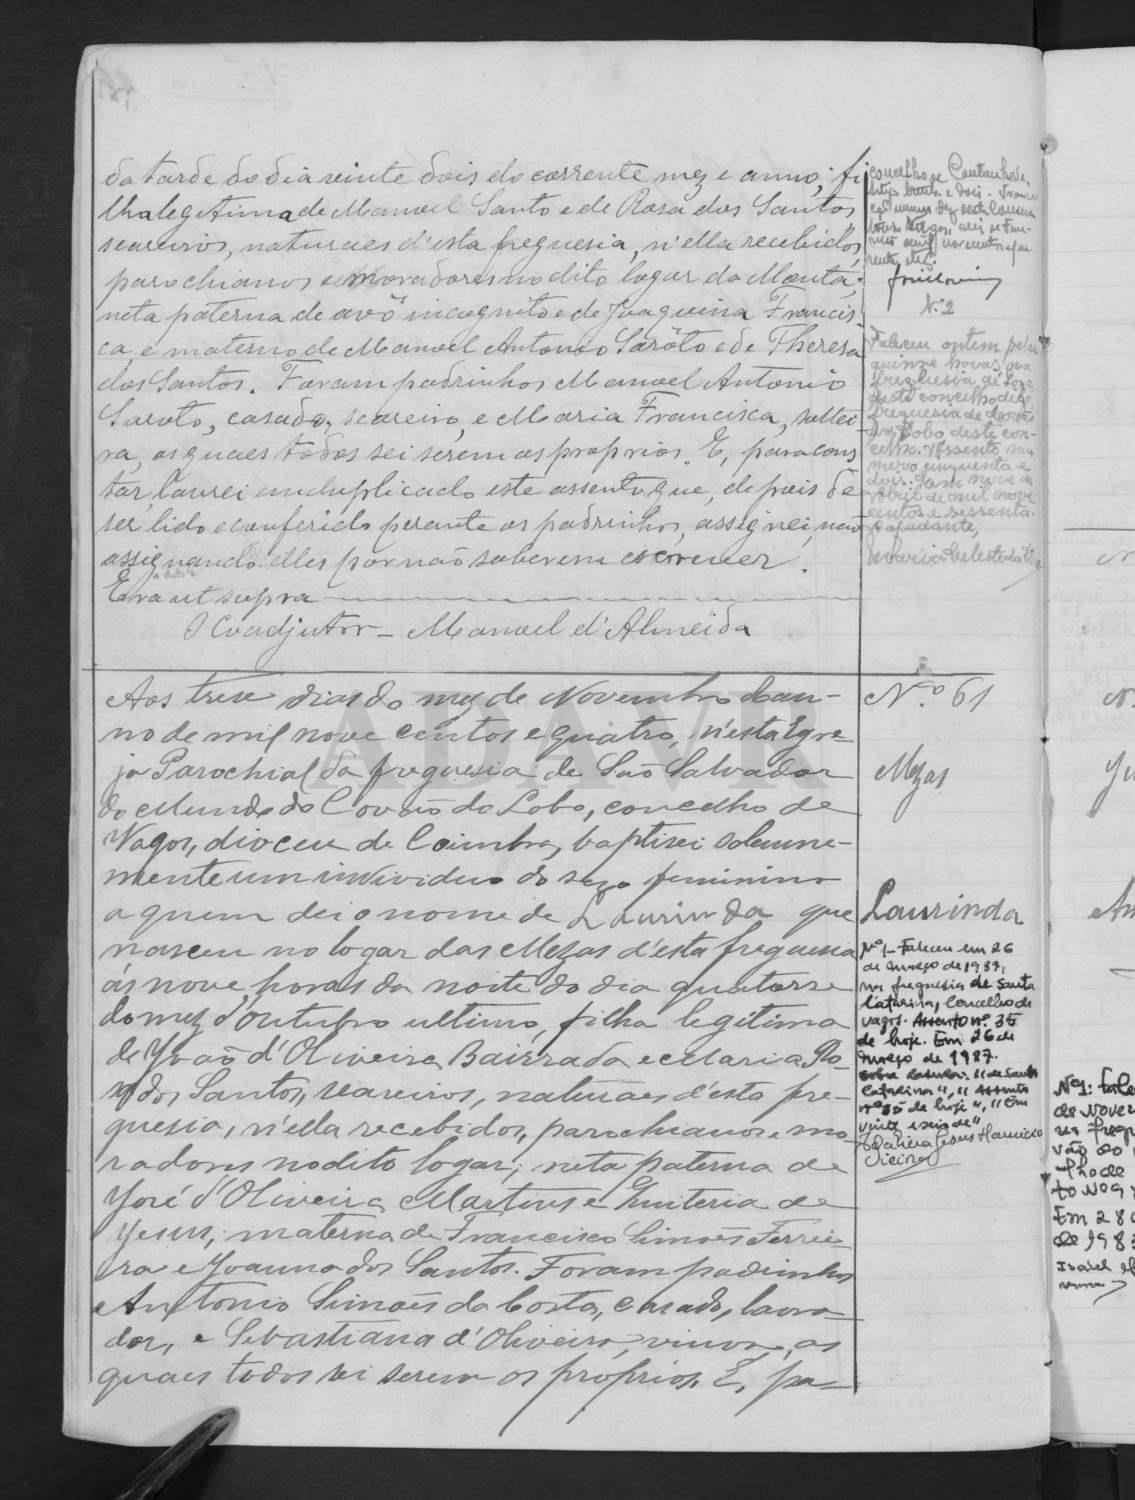 da tarde do dia vinte dois do corrente mez e anno; fi
lha legitima de Manoel Santo e de Rosa dos Santos
seareiros, naturaes d'esta freguesia, n'ella recebidos,
parochianos e moradores no dito logar da Mouta;
neta paterna de avô incognito e de Joaquina Francis-
ca, e materno de Manoel Antonio Sarôto e de Theresa
dos Santos. Foram padrinhos Manoel Antonio
Saroto, casado, seareiro, e Maria Francisca, soltei-
ra, os quaes todos sei serem os proprios. E, para cons
tar, lavrei em duplicado este assento que, depois de
ser lido e conferido perante os padrinhos, assignei, não
assignando elles por não saberem escrever.
Era ut supra
O Coadjutor - Manoel d'Almeida
concelho de Cantanhede,
Nº 2
Faleceu ontem pelas
quinze horas, na
freguesia de Soza
deste concelho digo
freguesia de Covão
do Lobo deste con-
celho. Assento nu-
mero cinquenta e
dois. Em nove de
Abril de mil nove
centos e sessenta.
O ajudante,
Aos treze dias do mez de Novembro do an-
no de mil nove centos e quatro, n'esta Egre-
ja Parochial da freguesia de São Salvador
do Mundo do Covão do Lobo, concelho de
Vagos, diocese de Coimbra, baptisei solemne-
mente um individuo do sexo feminino
a quem dei o nome de Laurinda que
nasceu no logar das Mezas d'esta freguesia
ás nove horas da noite do dia quatorze
do mez d'Outubro ultimo, filha legitima
de João d'Oliveira Bairrada e Maria Ro-
sa dos Santos, seareiros, naturaes d'esta fre-
guesia, n'ella recebidos, parochianos e mo
radores no dito logar; neta paterna de
José d'Oliveira Martins e Quiteria de
Jesus; materna de Francisco Simões Ferrei-
ra e Joanna dos Santos. Foram padrinhos
Antonio Simões da Costa, casado, lavra-
dor, e Sebastiana d'Oliveira, viuva, os
quaes todos sei serem os proprios. E, pa-
Nº 61
Mezas
Laurinda
Nº 1 - Faleceu em 26
de março de 1987,
na freguesia de Santa
Catarina, Concelho de
Vagos. Assento nº 35
de hoje. Em 26 de
março de 1987.
"de Santa
Catarina", "Assento
nº 35 de hoje", "Em
vinte e seis de"
Vieira
ADAVR
Nº 1: Fale
de Nover
na freg
vão do
lho de
to Nº 9
Em 28
de 198
Isabel